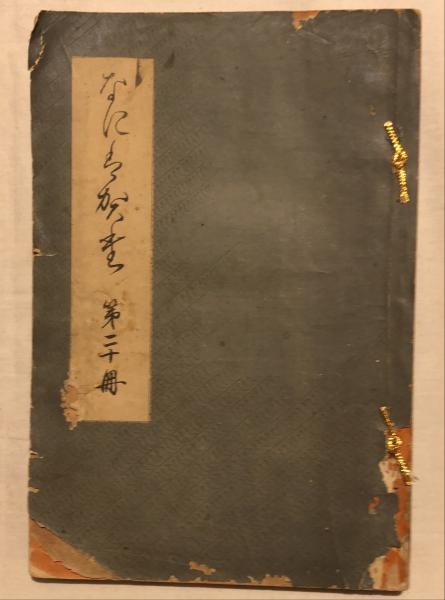 なにはがた 第二十冊